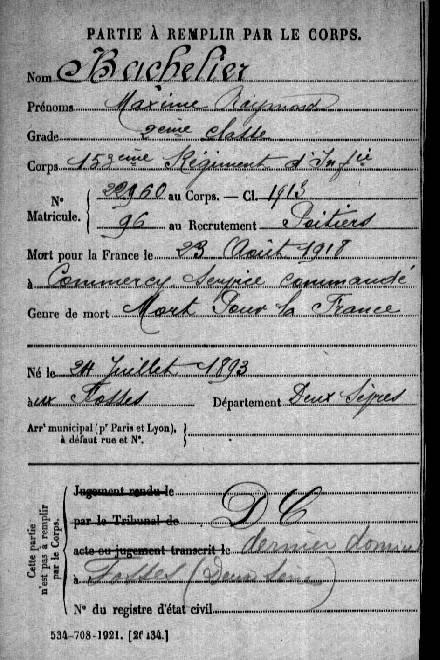 PARTIE À REMPLIR PAR LE CORPS.
Nom Bachelier
Prénoms Maxime Raymond
Grade 2ème classe
Corps 153ème Régiment d'Infie
N° Matricule. { 22960 au Corps. — Cl. 1913
96 au Recrutement Poitiers
Mort pour la France le 23 Août 1918
à Commercy service commandé
Genre de mort Mort Pour la France
Né le 24 Juillet 1893
à aux Fosses Département Deux Sèvres
Arrt municipal (pr Paris et Lyon), à défaut rue et N°. }
Cette partie n'est pas à remplir par le Corps.
Jugement rendu le
par le Tribunal de D C
acte ou jugement transcrit le dernier domici
à Fosses (Deux
N° du registre d'état civil
534-708-1921. [26434.]